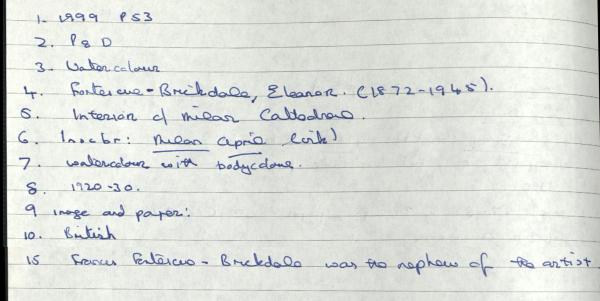 1. 1999 PS3
2. P & D
3. Watercolour
4. Fortescue-Brickdale, Eleanor. (1872-1945).
5. Interior of Milan Cathedral.
6. Inscbr: Milan April (ink)
7. watercolour with bodycolour.
8. 1920-30.
9 image and paper:
10. British
15 Francis Fortescue-Brickdale was the nephew of the artist.